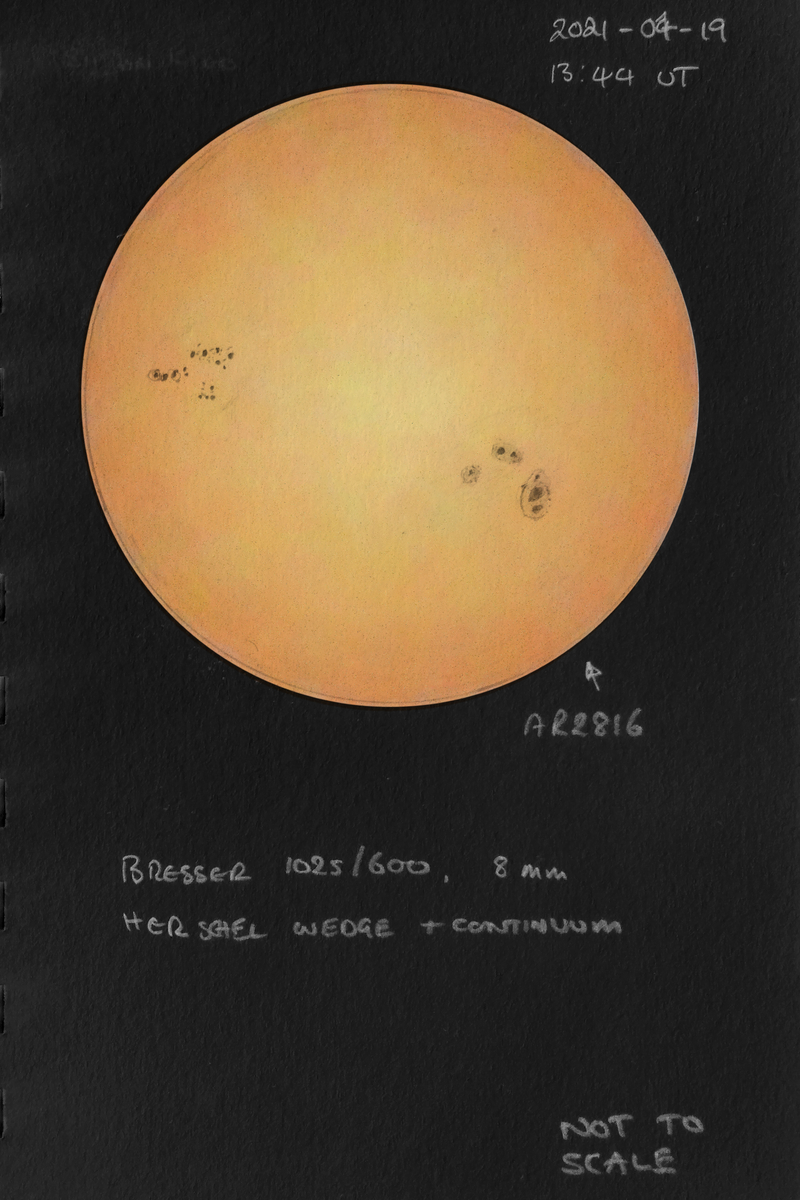 2021-04-19
13:44 UT
AR2816
BRESSER 1025/600, 8mm
HERSCHEL WEDGE + CONTINUUM
NOT TO
SCALE